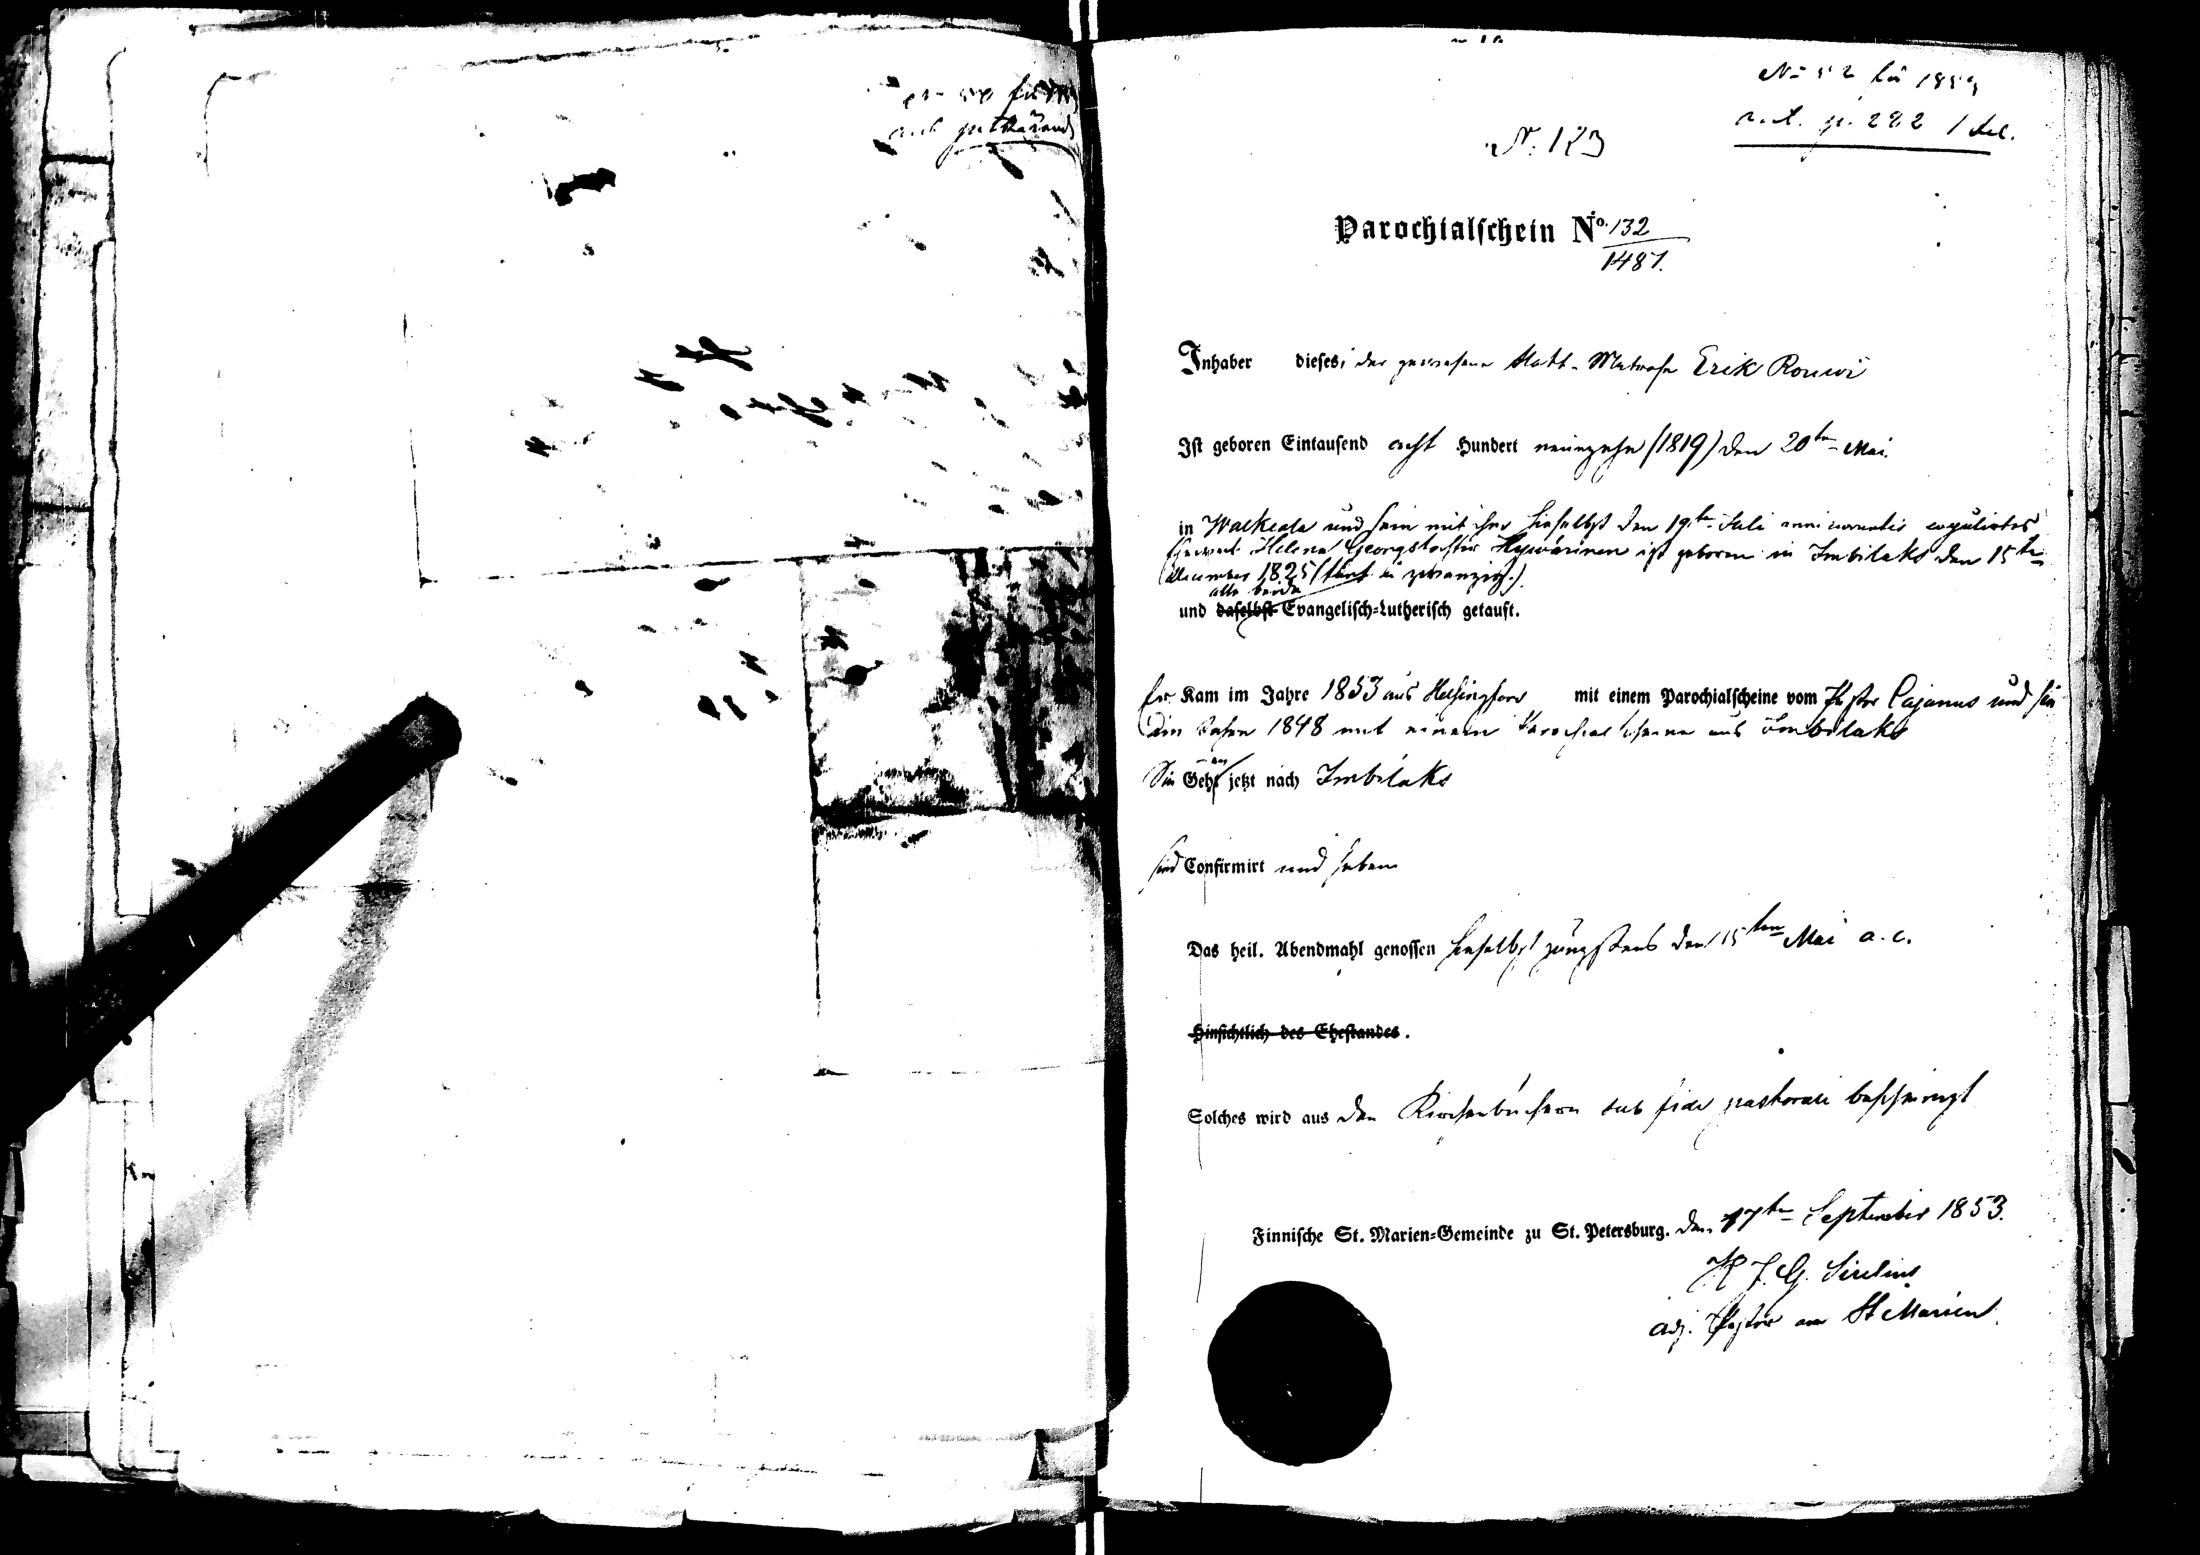 No 52 für 1853
N: 123
Parochialschein No. 132
1487.
Inhaber dieses, der gewesene Matrose Erik Rouwi
Ist geboren Eintausend acht Hundert neunzehn (1819) den 20ten Mai.
in Walkeala und sein mit ihr hieselbst den 19ten Juli anni currentis copulirtes
Eheweib Helena Georgstochter Hywärinen ist geboren in Imbilaks den 15ten
December 1825 (fünf u zwanzig.)
alle beide
und daselbst Evangelisch-Lutherisch getauft.
Er Kam im Jahre 1853 aus Helsingfors mit einem Parochialscheine vom Pastor Cajanus und sie
im Jahre 1848 mit einem Parochialscheine aus Imbilaks
Sie Gehen jetzt nach Imbilaks
sind Confirmirt und haben
Das heil. Abendmahl genossen hieselbst jüngstens den 15ten Mai a. c.
Hinsichtlich des Ehestandes.
Solches wird aus den Kirchenbüchern sub fide pastorali bescheinigt
Finnische St. Marien-Gemeinde zu St. Petersburg. den 17ten September 1853.
Sirelius
adj. Pastor an St Marien.